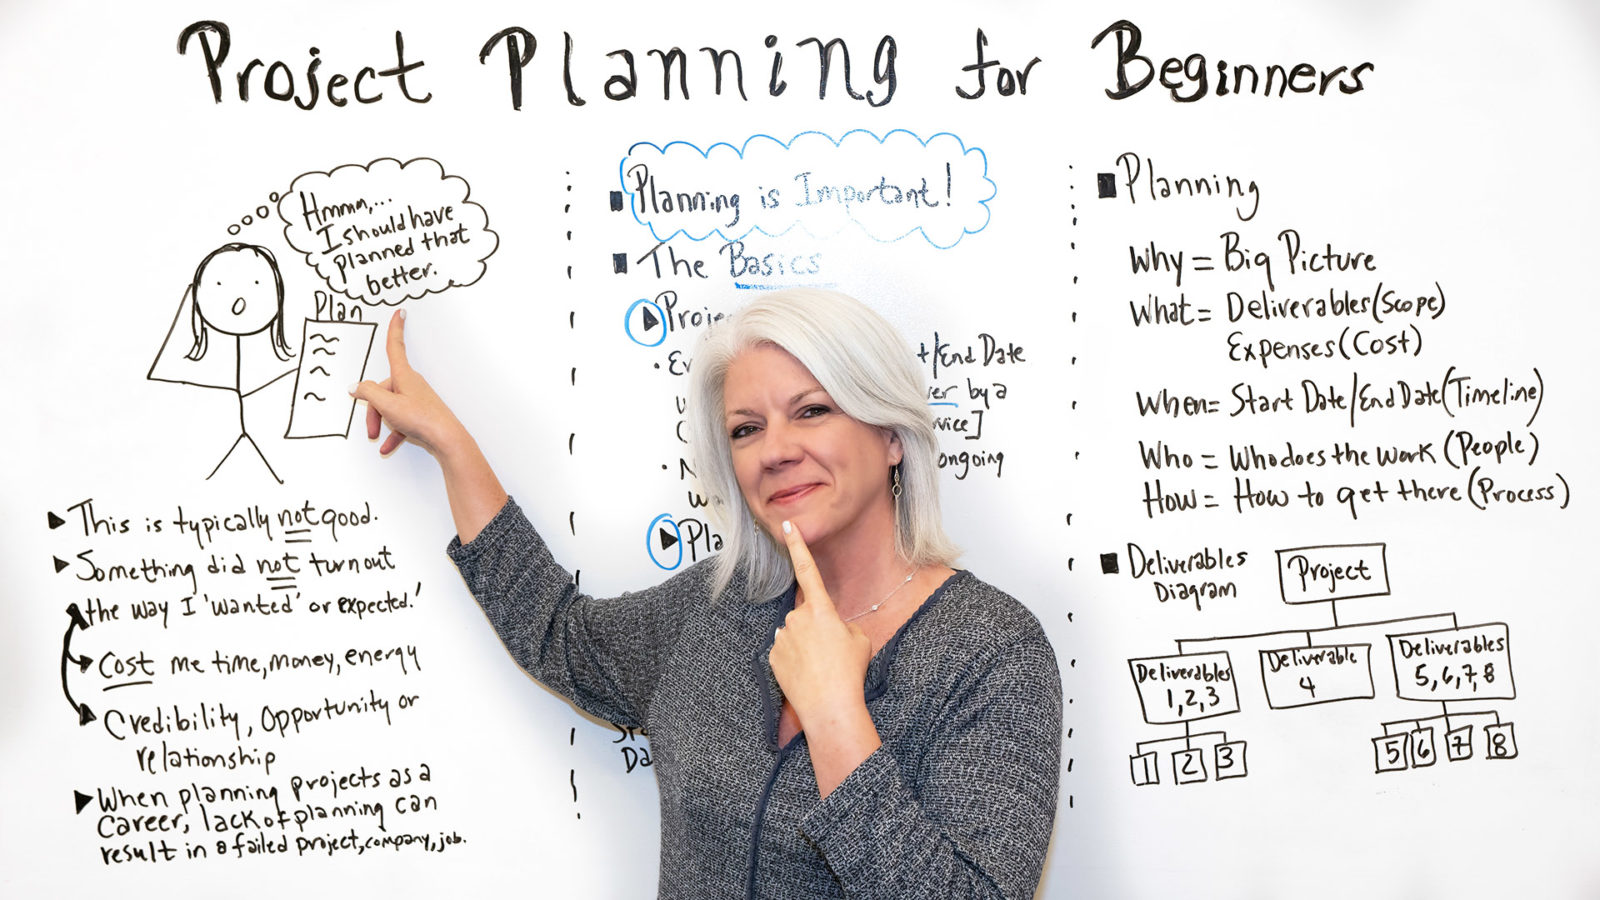 Project Planning for Beginners
Hmmm,...
I should have
planned that
better.
Plan
▶ This is typically not good.
▶ Something did not turn out
the way I 'wanted' or expected.'
Cost me time, money, energy
Credibility, Opportunity or
relationship
▶ When planning projects as a
career, lack of planning can
result in a failed project, company, job.
■ Planning is Important!
■ The Basics
▶
t/End Date
by a
ongoing
▶
■ Planning
Why = Big Picture
What = Deliverables (Scope)
Expenses (Cost)
When = Start Date/End Date (Timeline)
Who = Who does the work (People)
How = How to get there (Process)
■ Deliverables
Diagram
Project
Deliverables
1, 2, 3
Deliverable
4
Deliverables
5, 6, 7, 8
1 2 3
5 6 7 8